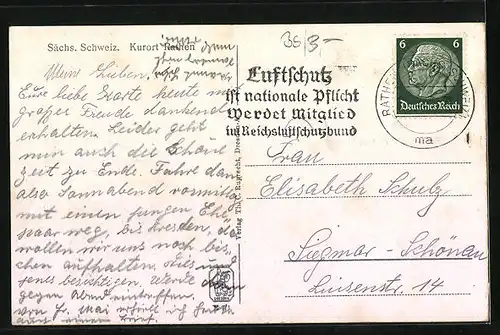 Sächs. Schweiz. Kurort Rathen
38/3,-
Meine Lieben.
Eure liebe Karte heute mit
großer Freude dankend
erhalten. Leider geht
nun auch die schöne
zeit zu Ende. Fahre dann
also Sonnabend vormittag
mit einem jungen Ehe
paar weg, bis Dresden, da
wollen wir uns noch bis
chen aufhalten. Dies und
jenes besichtigen. Werde dann
gegen Abend eintreffen.
von Fr. Mai erhielt ich heute
auch einen Brief.
Verlag Th. C. Ruprecht, Dresden
Luftschutz
ist nationale Pflicht
Werdet Mitglied
im Reichsluftschutzbund
6 6
Deutsches Reich
RATHEN
ma
Frau
Elisabeth Schulz
Siegmar-Schönau
Luisenstr. 14